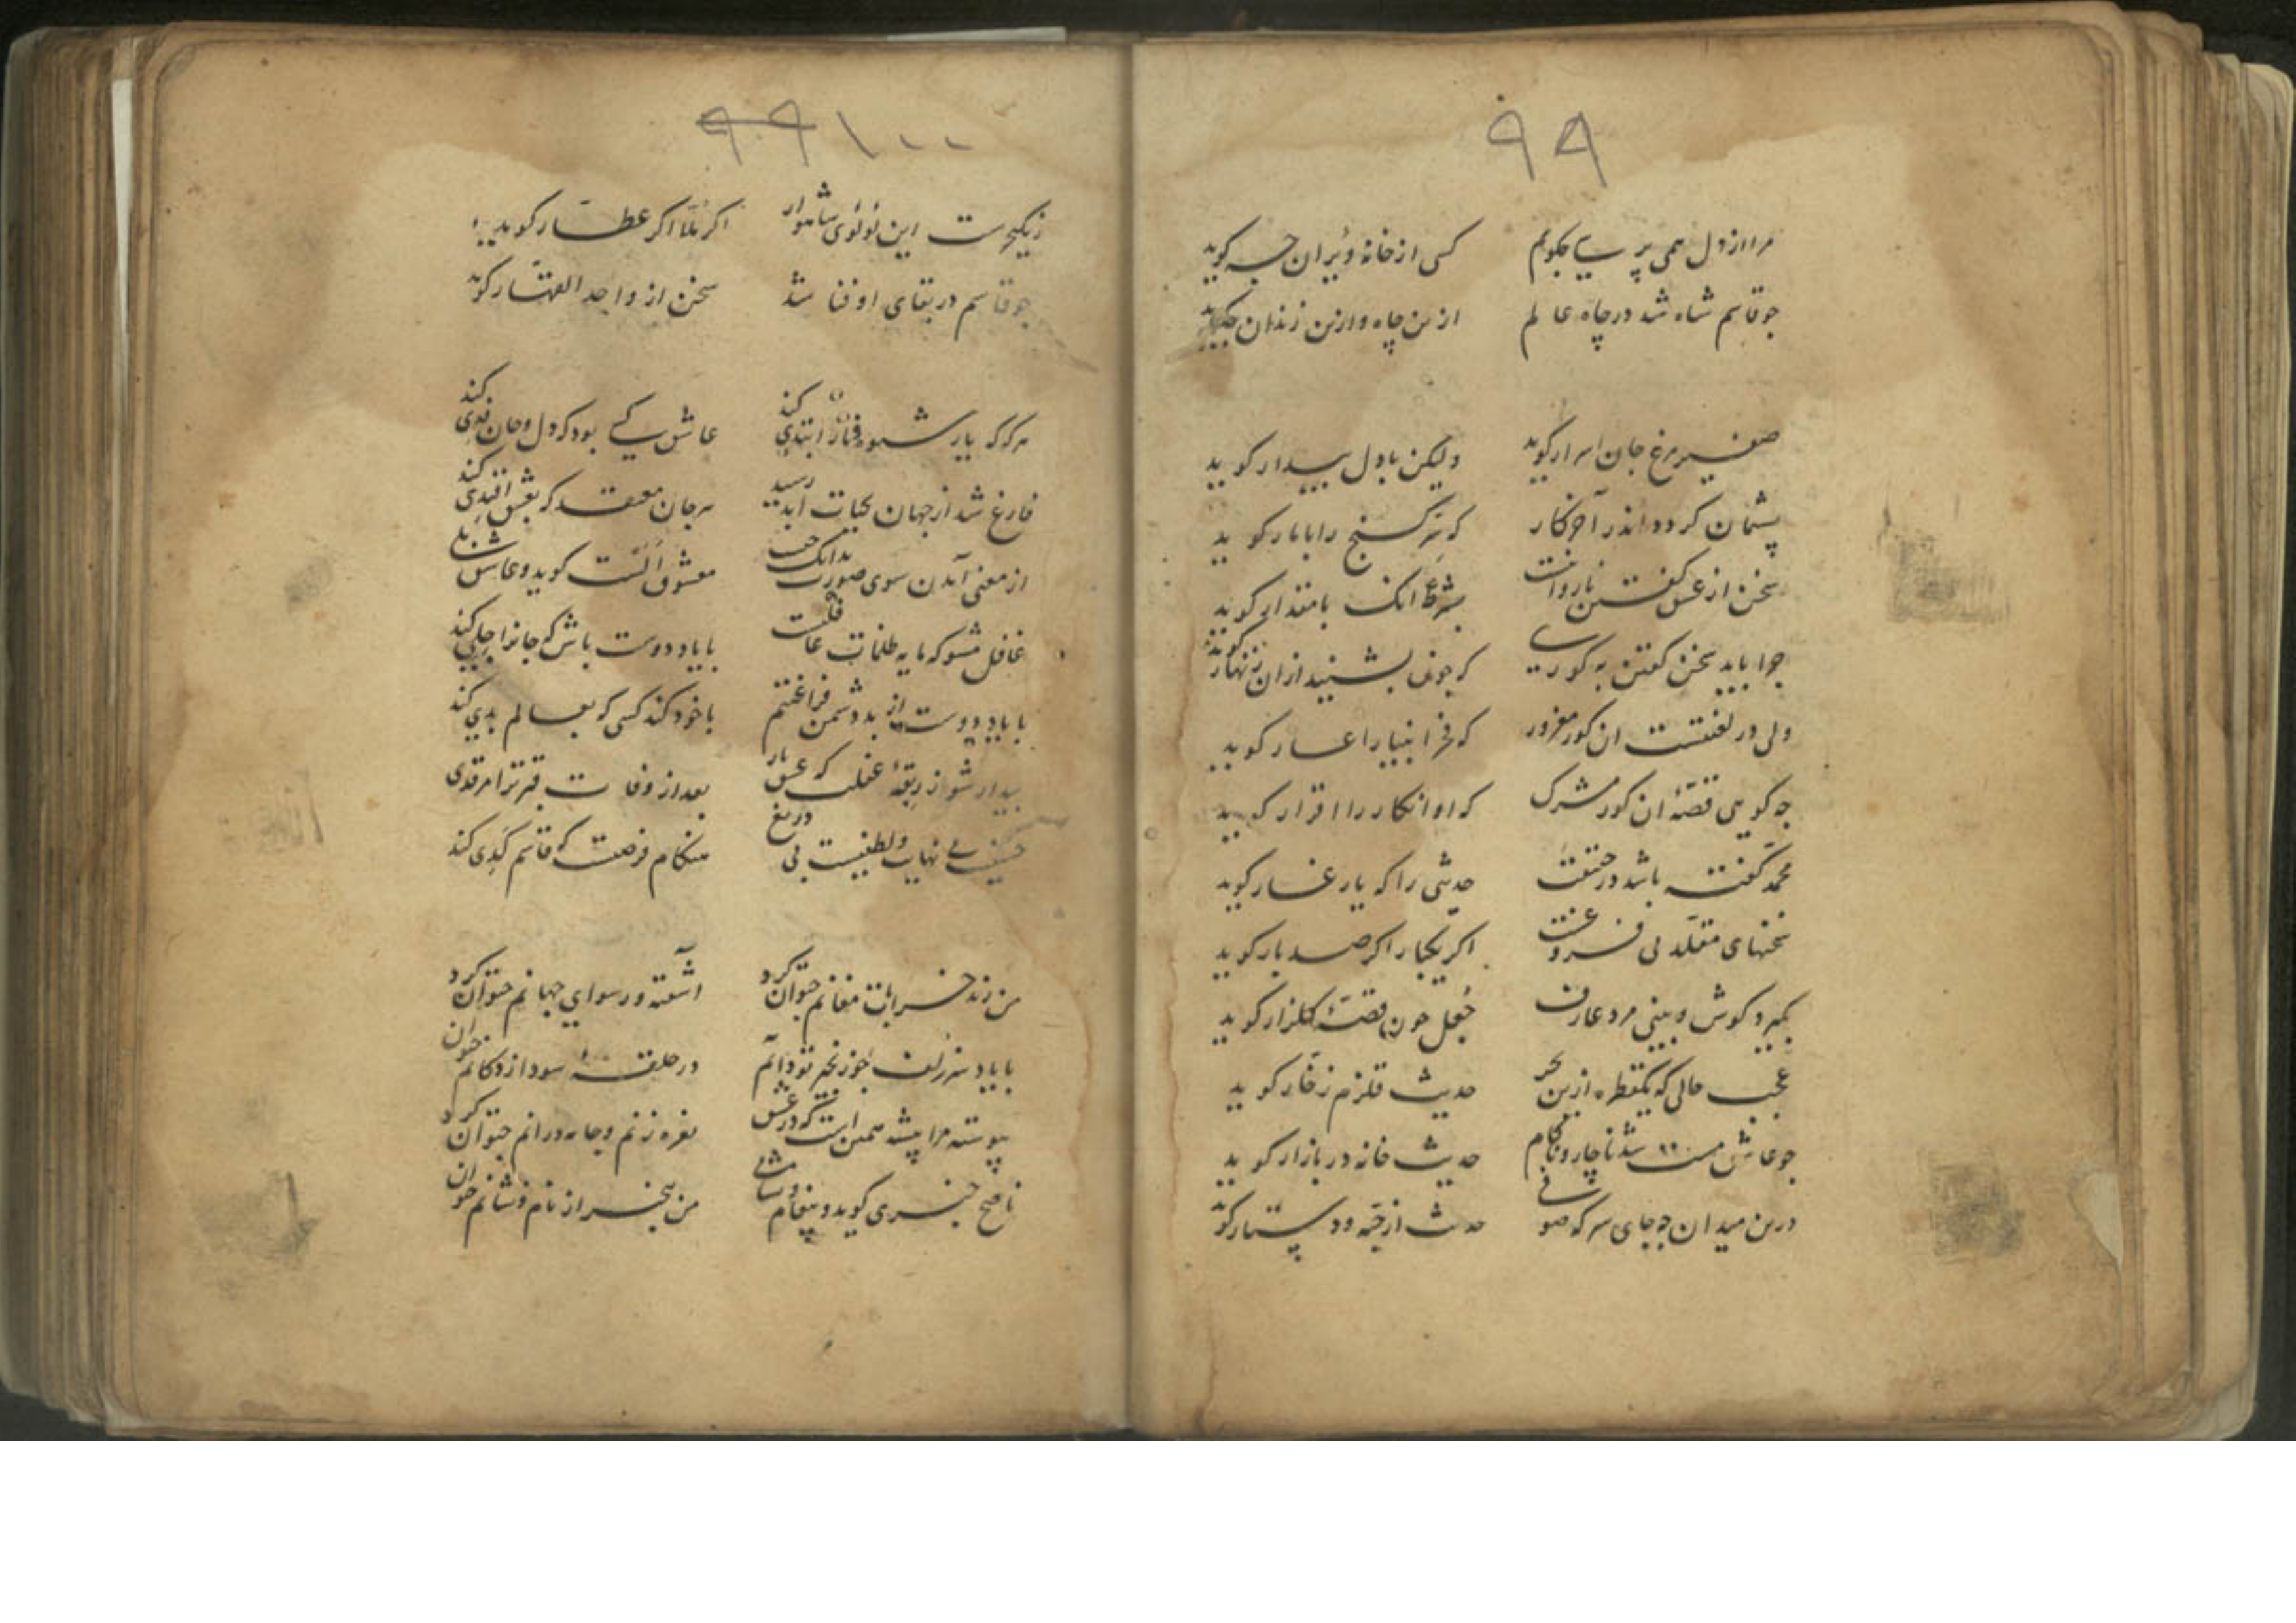 ۹۹
مرا از دل همی پرسی چکویم کسی از خانهٔ ویران چه کوید
جو قاسم شاه شد در چاه عالم ازین چاه و ازین زندان
صفیر مرغ جان اسرار کوید ولیکن با دل بیدار کوید
پشیمان کردد اندر آخر کار که سرّ کنج را با مار کوید
سخن از عشق کفتن نارواست بشرط آنک با مقدار کوید
چرا باید سخن کفتن به کوری که چون بشنید از ان زنهار کوید
ولی در لعنتست ان کور مغرور که فخر انبیا را عار کوید
چه کویی قصّهٔ ان کور مشرک که او انکار را اقرار کوید
محمد کفته باشد در حقیقت حدیثی را که یار غار کوید
سخنهای مقلد بی فروغست اکر یکبار اکر صد بار کوید
بکیرد کوش و بینی مرد عارف جُعَل چون قصّهٔ کلزار کوید
عجب حالی که یکقطره ازین بحر حدیث قلزم زخّار کوید
جو عاشق مست شد ناچار و ناکام حدیث خانه در بازار کوید
درین میدان چه جای سر که صوفی حدیث از جبّه و دستار کوید
۹۹ ۱۰۰
ز یکبحرست این لؤلؤی شاهوار اکر ملّا اکر عطّار کوید
جو قاسم در بقای او فنا شد سخن از واحد القهّار کوید
هرکه که یار شیوهٔ رفتار ابتدی کند عاشق کسی بود که دل و جان فدی کند
فارغ شد از جهان بحیات ابد رسید هر جان معتقد که بعشق اقتدی کند
از معنی آمدن سوی صورت بدانک چیست معشوق اَلَست کوید و عاشق بلی کند
غافل مشو که مایه ظلمات غفلتست با یاد دوست باش که جانرا جلی کند
با یاد دوست از بد دشمن فراغتیم با خود کند کسی که بعالم بدی کند
بیدار شو ز ربقهٔ غفلت که عشق یار بعد از وفات قبر ترا مرقدی کند
حسنیست بی نهایت و لطفیست بی دریغ هنکام فرصتست که قاسم کدی کند
من رند خرابات مغانم چتوان کرد آشفته و رسوای جهانم چتوان کرد
با یاد سر زلف چو زنجیر تو دایم در حلقهٔ سودازدکانم چتوان
پیوسته مرا پیشه همین است که در عشق نعره زنم و جامه درانم چتوان کرد
ناصح خبری کوید و پیغام و سلامی من بیخبر از نام و نشانم چتوان